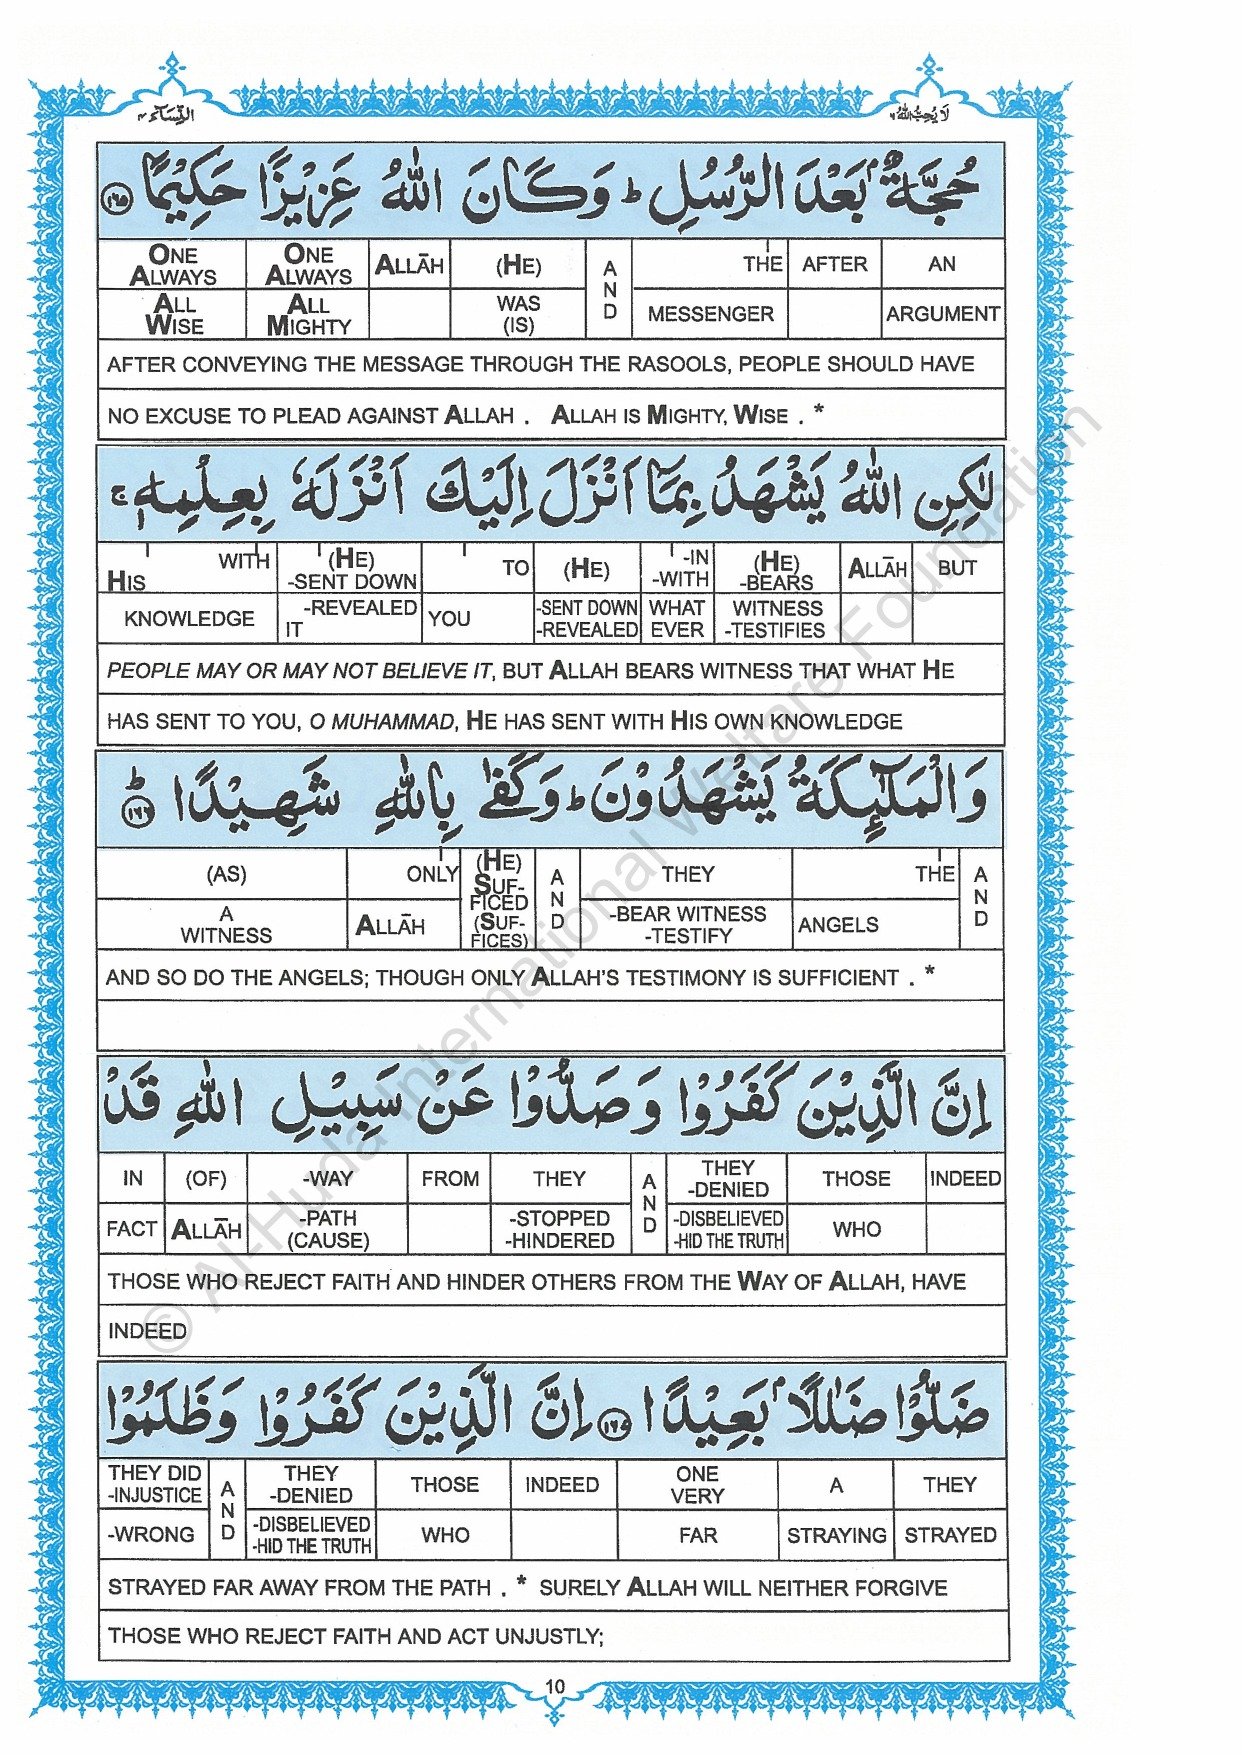 النِّسَآء ٤
لَا يُحِبُّ اللهُ ٦
حُجَّةٌۢ بَعْدَ الرُّسُلِ ؕ وَكَانَ اللهُ عَزِيْزًا حَكِيْمًا ﴿۱۶۵﴾
ONE ALWAYS ONE ALWAYS ALLĀH (HE) AND THE AFTER AN
ALL WISE ALL MIGHTY WAS (IS) MESSENGER ARGUMENT
AFTER CONVEYING THE MESSAGE THROUGH THE RASOOLS, PEOPLE SHOULD HAVE
NO EXCUSE TO PLEAD AGAINST ALLAH . ALLAH IS MIGHTY, WISE . *
لٰكِنِ اللهُ يَشْهَدُ بِمَآ اَنْزَلَ اِلَيْكَ اَنْزَلَهٗ بِعِلْمِهٖ ۚ
HIS WITH (HE) -SENT DOWN TO (HE) -IN -WITH (HE) -BEARS ALLĀH BUT
KNOWLEDGE -REVEALED IT YOU -SENT DOWN -REVEALED WHAT EVER WITNESS -TESTIFIES
PEOPLE MAY OR MAY NOT BELIEVE IT, BUT ALLAH BEARS WITNESS THAT WHAT HE
HAS SENT TO YOU, O MUHAMMAD, HE HAS SENT WITH HIS OWN KNOWLEDGE
وَالْمَلٰٓئِكَةُ يَشْهَدُوْنَ ؕ وَكَفٰى بِاللهِ شَهِيْدًا ﴿۱۶۶﴾ ؕ
(AS) ONLY (HE) SUF- FICED AND THEY THE AND
A WITNESS ALLĀH (SUF- FICES) -BEAR WITNESS -TESTIFY ANGELS
AND SO DO THE ANGELS; THOUGH ONLY ALLAH'S TESTIMONY IS SUFFICIENT . *
اِنَّ الَّذِيْنَ كَفَرُوْا وَصَدُّوْا عَنْ سَبِيْلِ اللهِ قَدْ
IN (OF) -WAY FROM THEY AND THEY -DENIED THOSE INDEED
FACT ALLĀH -PATH (CAUSE) -STOPPED -HINDERED -DISBELIEVED -HID THE TRUTH WHO
THOSE WHO REJECT FAITH AND HINDER OTHERS FROM THE WAY OF ALLAH, HAVE
INDEED
ضَلُّوْا ضَلٰلًاۢ بَعِيْدًا ﴿۱۶۷﴾ اِنَّ الَّذِيْنَ كَفَرُوْا وَظَلَمُوْا
THEY DID -INJUSTICE AND THEY -DENIED THOSE INDEED ONE VERY A THEY
-WRONG -DISBELIEVED -HID THE TRUTH WHO FAR STRAYING STRAYED
STRAYED FAR AWAY FROM THE PATH . * SURELY ALLAH WILL NEITHER FORGIVE
THOSE WHO REJECT FAITH AND ACT UNJUSTLY;
10
© Al-Huda International Welfare Foundation